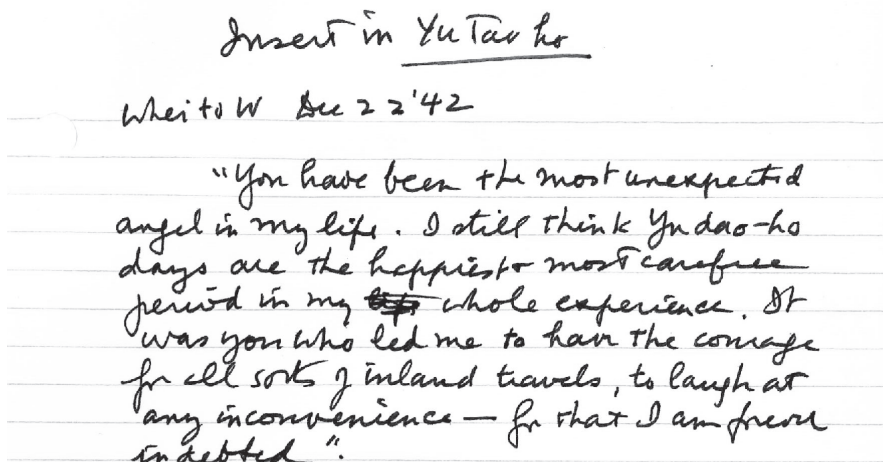 Insert in Yu Tao ho
Whei to W Dec 22 '42
"You have been the most unexpected
angel in my life. I still think Yu dao-ho
days are the happiest & most carefree
period in my whole experience. It
was you who led me to have the courage
for all sorts of inland travels, to laugh at
any inconvenience — for that I am forever
indebted".